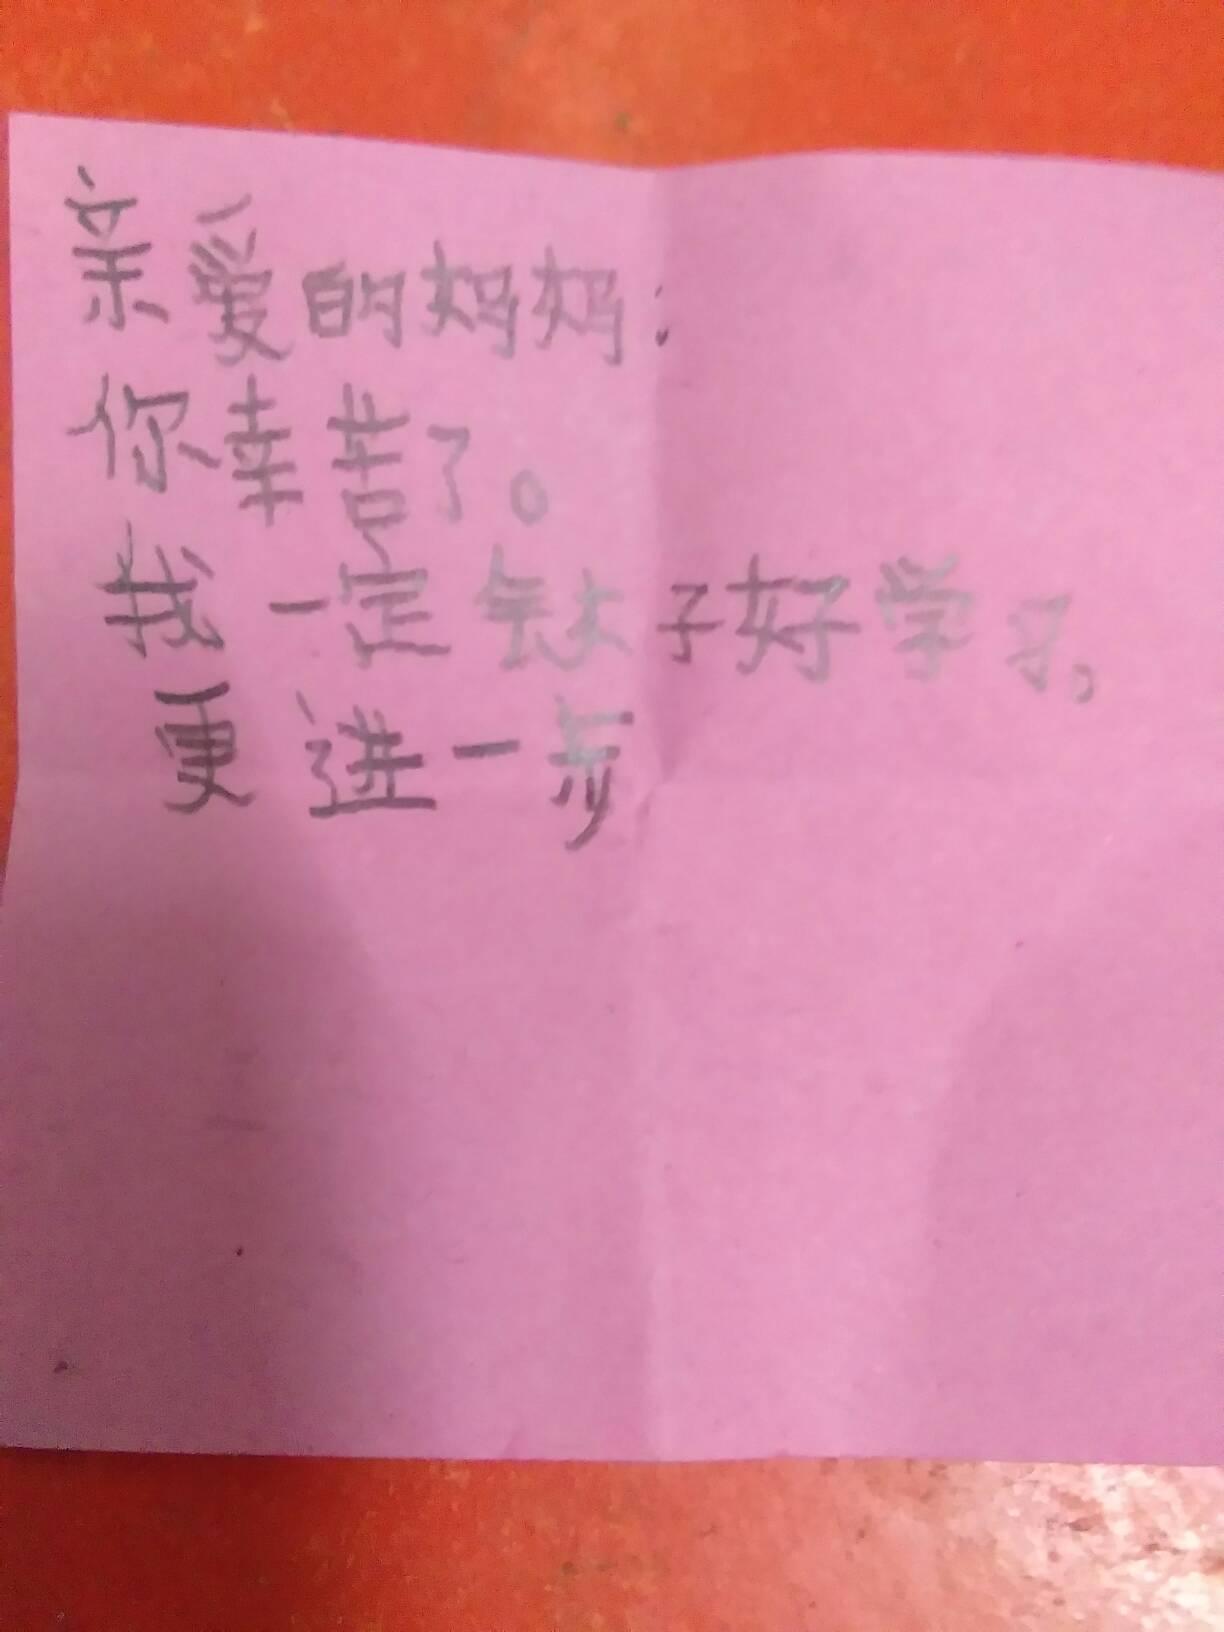 亲爱的妈妈：
你幸苦了。
我一定 子好学习，
更进一步